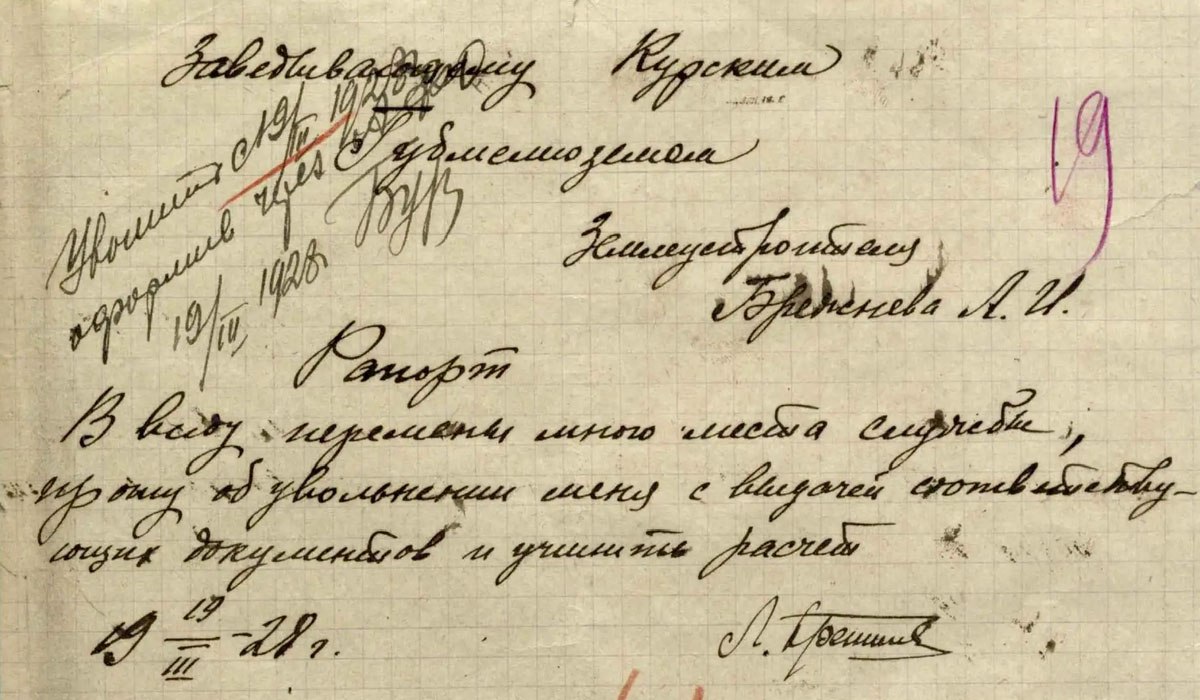 Заведывающему Курским
Губмелиоземом
19
Уволить с 19/III 1928
оформив через
19/III 1928г.
Землеустроителя
Брежнева Л. И.
Рапорт
В виду перемены мною места службы,
прошу об увольнении меня с выдачей соответству-
ющих документов и учинить расчет
19 19/III -28 г.
Л. Брежнев